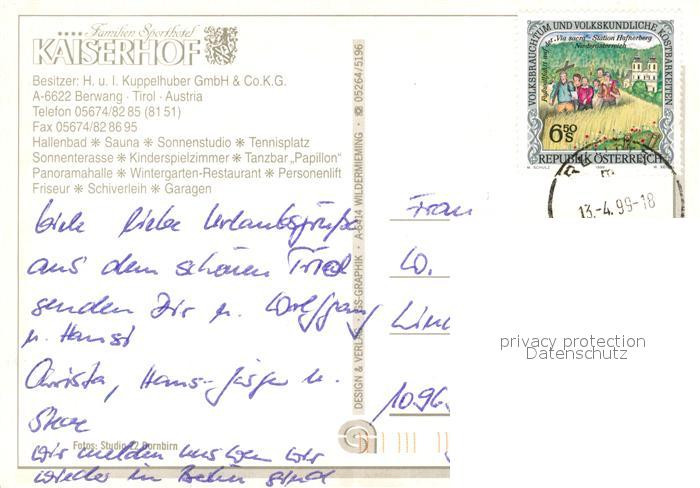 Familien Sporthotel
KAISERHOF
Besitzer: H. u. I. Kuppelhuber GmbH & Co.K.G.
A-6622 Berwang · Tirol · Austria
Telefon 05674/82 85 (81 51)
Fax 05674/82 86 95
Hallenbad ❋ Sauna ❋ Sonnenstudio ❋ Tennisplatz
Sonnenterasse ❋ Kinderspielzimmer ❋ Tanzbar „Papillon"
Panoramahalle ❋ Wintergarten-Restaurant ❋ Personenlift
Friseur ❋ Schiverleih ❋ Garagen
viele liebe Urlaubsgrüße
aus dem schönen Tirol
senden Dir u. Wolfgang
u. Hansi
Christa, Hans-Jürgen u.
wir melden uns wenn wir
wieder in Berlin sind
Fotos: Studio 22 Dornbirn
DESIGN & VERLAG · GS-GRAPHIK · A-6414 WILDERMIEMING · 05264/5196
Frau
W.
1096
VOLKSBRAUCHTUM UND VOLKSKUNDLICHE KOSTBARKEITEN
Fußwallfahrt auf der „Via sacra" - Station Hafnerberg
Niederösterreich
6 50 S
REPUBLIK ÖSTERREICH
M. SCHULZ
1999
13.-4.99-18
privacy protection
Datenschutz